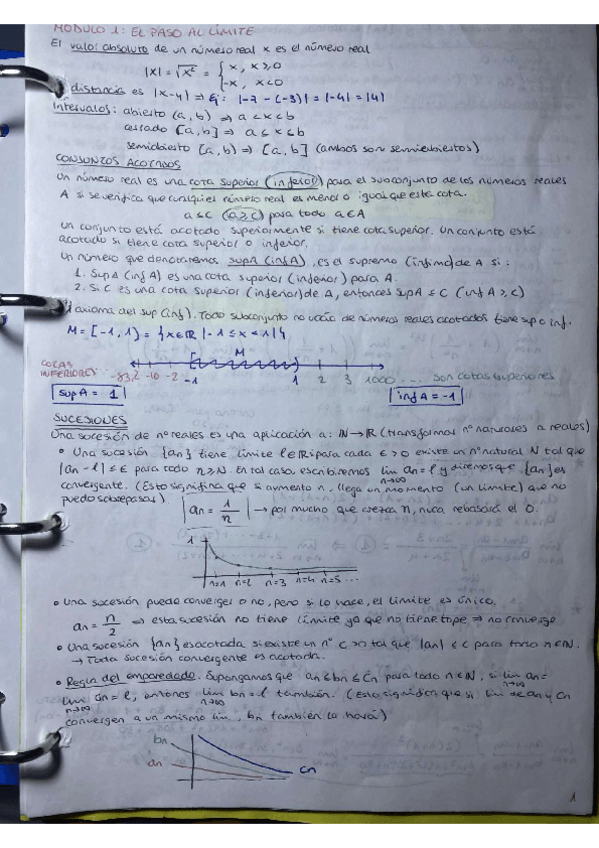 MÓDULO 1: EL PASO AL LÍMITE
El valor absoluto de un número real x es el número real
|x| = √x² = { x, x ≥ 0
-x, x < 0
distancia es |x-y| ⇒ Ej: |-7-(-3)| = |-4| = |4|
Intervalos: abierto (a, b) ⇒ a < x < b
cerrado [a, b] ⇒ a ≤ x ≤ b
semiabierto [a, b) ⇒ (a, b] (ambos son semiabiertos)
CONJUNTOS ACOTADOS
Un número real es una cota superior (inferior) para el subconjunto de los números reales
A si se verifica que cualquier número real es menor o igual que esta cota.
a ≤ c (a ≥ c) para todo a ∈ A
Un conjunto está acotado superiormente si tiene cota superior. Un conjunto está
acotado si tiene cota superior o inferior.
Un número que denotaremos supA (infA), es el supremo (ínfimo) de A si:
1. SupA (infA) es una cota superior (inferior) para A.
2. Si c es una cota superior (inferior) de A, entonces supA ≤ c (infA ≥ c)
axioma del sup (inf). Todo subconjunto no vacío de números reales acotados tiene sup o inf.
M = [-1, 1) = {x ∈ ℝ | -1 ≤ x < 1}
M
COTAS INFERIORES -83,2 -10 -2 -1 1 2 3 1000 ... son cotas superiores
supA = 1 infA = -1
SUCESIONES
Una sucesión de nº reales es una aplicación a: ℕ → ℝ (transforma nº naturales a reales)
• Una sucesión {an} tiene límite l ∈ ℝ si para cada ε > 0 existe un nº natural N tal que
|an - l| ≤ ε para todo n ≥ N. En tal caso escribiremos lim n→∞ an = l y diremos que {an} es
convergente. (Esto significa que si aumento n, llega un momento (un límite) que no
puedo sobrepasar)
an = 1/n → por mucho que crezca n, nunca rebasará el 0.
1
n=1 n=2 n=3 n=4 n=5 ...
• Una sucesión puede converger o no, pero si lo hace, el límite es único.
an = n/2 ⇒ esta sucesión no tiene límite ya que no tiene tope ⇒ no converge
• Una sucesión {an} es acotada si existe un nº c > 0 tal que |an| ≤ c para todo n ∈ ℕ.
→ Toda sucesión convergente es acotada.
• Regla del emparedado. Supongamos que an ≤ bn ≤ cn para todo n ∈ ℕ, si lim n→∞ an =
lim n→∞ cn = l, entonces lim n→∞ bn = l también. (Esto significa que si lim de an y cn
convergen a un mismo lim, bn también lo hará)
bn
an
cn
1